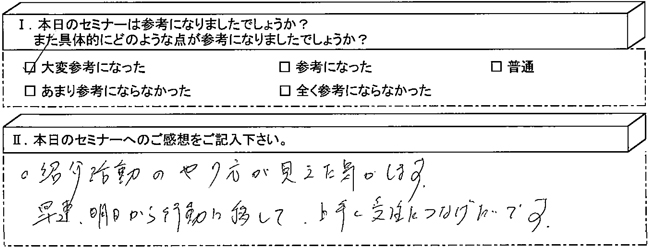 Ⅰ. 本日のセミナーは参考になりましたでしょうか？
また具体的にどのような点が参考になりましたでしょうか？
□ 大変参考になった □ 参考になった □ 普通
□ あまり参考にならなかった □ 全く参考にならなかった
Ⅱ. 本日のセミナーへのご感想をご記入下さい。
○紹介活動のやり方が見えた気がします。
早速、明日から行動に移して、上手く受注につなげたいです。